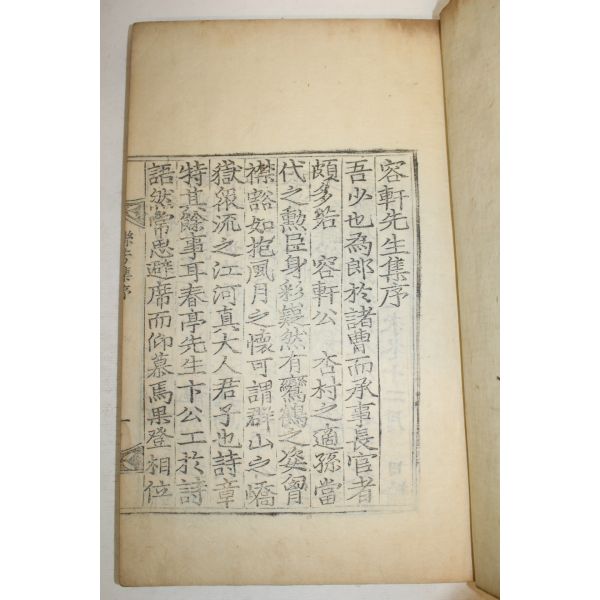 容軒先生集序
吾少也為郎於諸曹而承事長官者
頗多若 容軒公 杏村之適孫當
代之勲臣身彩頎然有鸞鶴之姿胷
襟豁如抱風月之懷可謂群山之喬
嶽衆流之江河真大人君子也詩章
特其餘事耳春亭先生卞公工於詩
語然常思避席而仰慕焉果登相位
集序
一